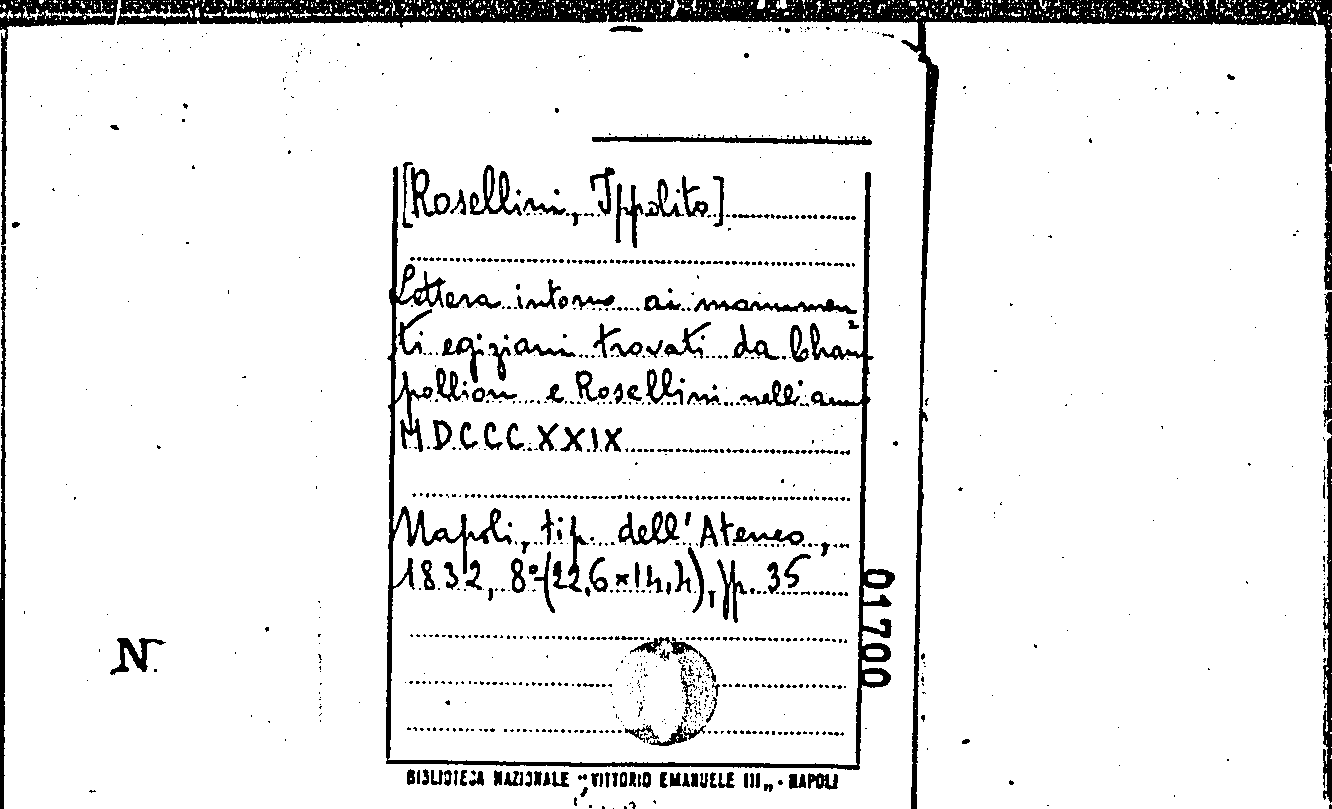 [Rosellini, Ippolito]
Lettera intorno ai monumen
ti egiziani trovati da Cham
pollion e Rosellini nell'anno
MDCCCXXIX
Napoli, tip. dell'Ateneo,
1832, 8º (22,6×14,4), pp. 35
01700
N
BIBLIOTECA NAZIONALE "VITTORIO EMANUELE III" - NAPOLI